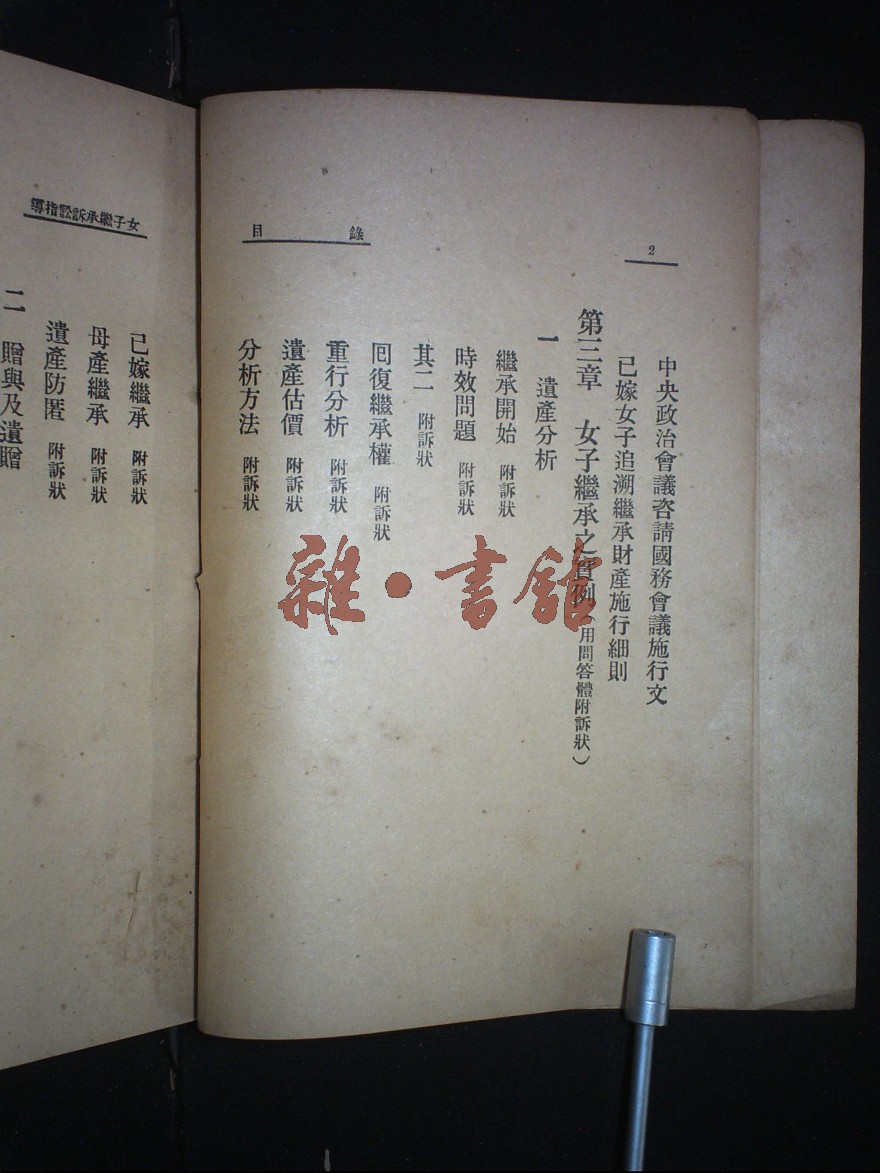 2
目錄
中央政治會議咨請國務會議施行文
已嫁女子追溯繼承財產施行細則
第三章 女子繼承之實例(用問答體附訴狀)
一 遺產分析
繼承開始 附訴狀
時效問題 附訴狀
其二 附訴狀
囘復繼承權 附訴狀
重行分析 附訴狀
遺產估價 附訴狀
分析方法 附訴狀
女子繼承訴訟指導
已嫁繼承 附訴狀
母產繼承 附訴狀
遺產防匿 附訴狀
二 贈與及遺贈
雜·書館